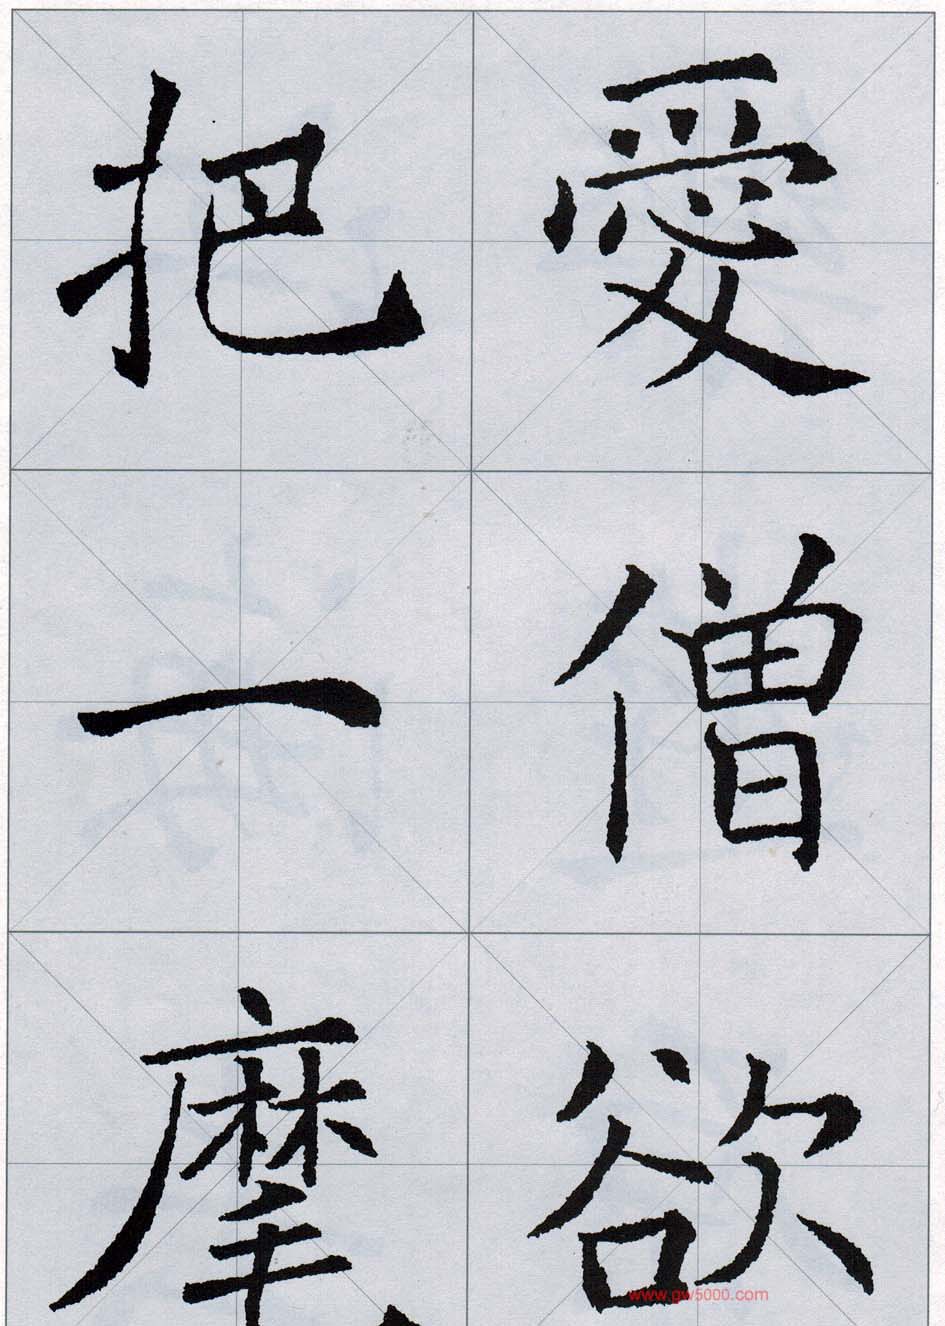 愛僧欲
把一摩
www.gw5000.com